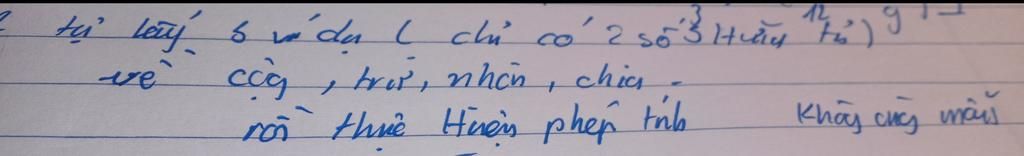 tự lấy 6 ví dụ ( chỉ có 2 số Hữu tỉ )
về cộg , trừ , nhân , chia .
rồi thực Hiện phép tính Khôg cùg mẫu